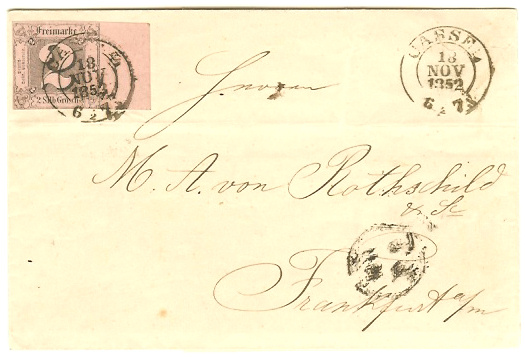 Freimarke
2
2 Silb. Grosch.
CASSEL
18
NOV
1852
6 ½ 7½
CASSEL
18
NOV
1852
6 ½ 7½
Herren
M. A. von Rothschild
& S.
Frankfurt a/m